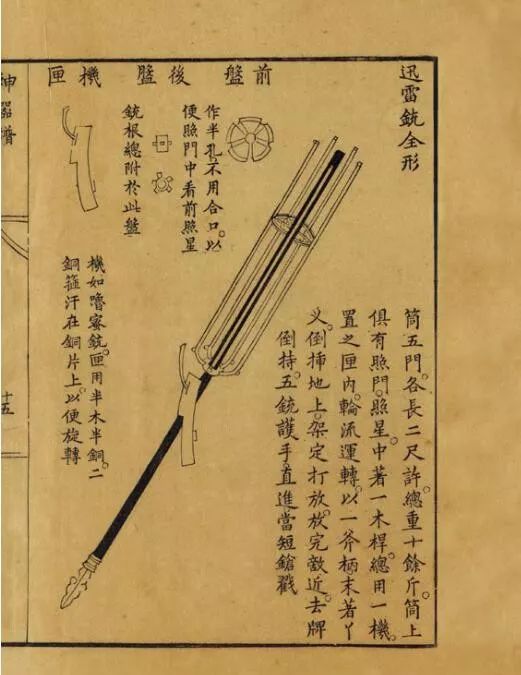 迅雷銃全形
前盤
後盤
機匣
作半孔不用合口以
便照門中看前照星
銃根總附於此盤
機如嚕密銃匣用半木半銅二
銅箍汗在銅片上以便旋轉
筒五門各長二尺許總重十餘斤筒上
俱有照門照星中著一木桿總用一機
置之匣內輪流運轉以一斧柄末著丫
叉倒插地上架定打放放完敵近去牌
倒持五銃護手直進當短鎗戳
神器譜
十五